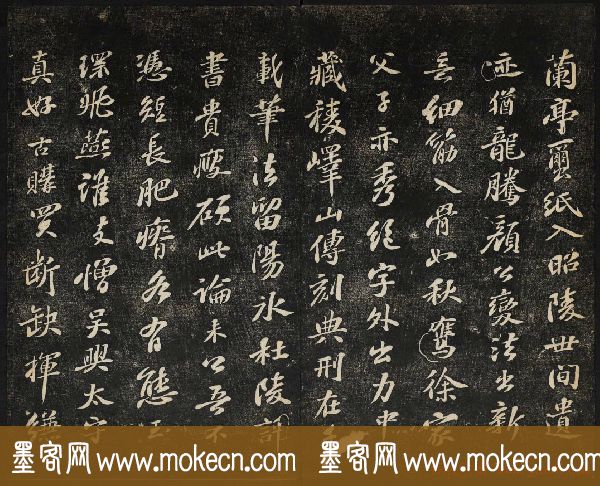 蘭亭蠒紙入昭陵世間遺
迹猶龍騰顏公變法出新
意細筋入骨如秋鷹徐家
父子亦秀絕字外出力中
藏稜嶧山傳刻典刑在千
載筆法留陽冰杜陵評
書貴瘦硬此論未公吾不
憑短長肥瘠各有態玉
環飛燕誰敢憎吳興太守
真好古購買斷缺揮縑
墨客网 www.mokecn.com 墨客网 www.mokecn.com